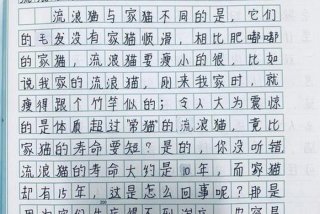 流浪猫与家猫不同的是，它们
的毛发没有家猫顺滑，相比肥嘟嘟
的家猫，流浪猫要瘦小的很，比如
说我家的流浪猫，刚来我家时，就
瘦得跟个竹竿似的；令人大为震惊
的是体质超过“常猫”的流浪猫，竟比
家猫的寿命要短？是的，你没听错，
流浪猫的寿命大约是10年，而家猫
却有15年，这是怎么回事呢？那是
200